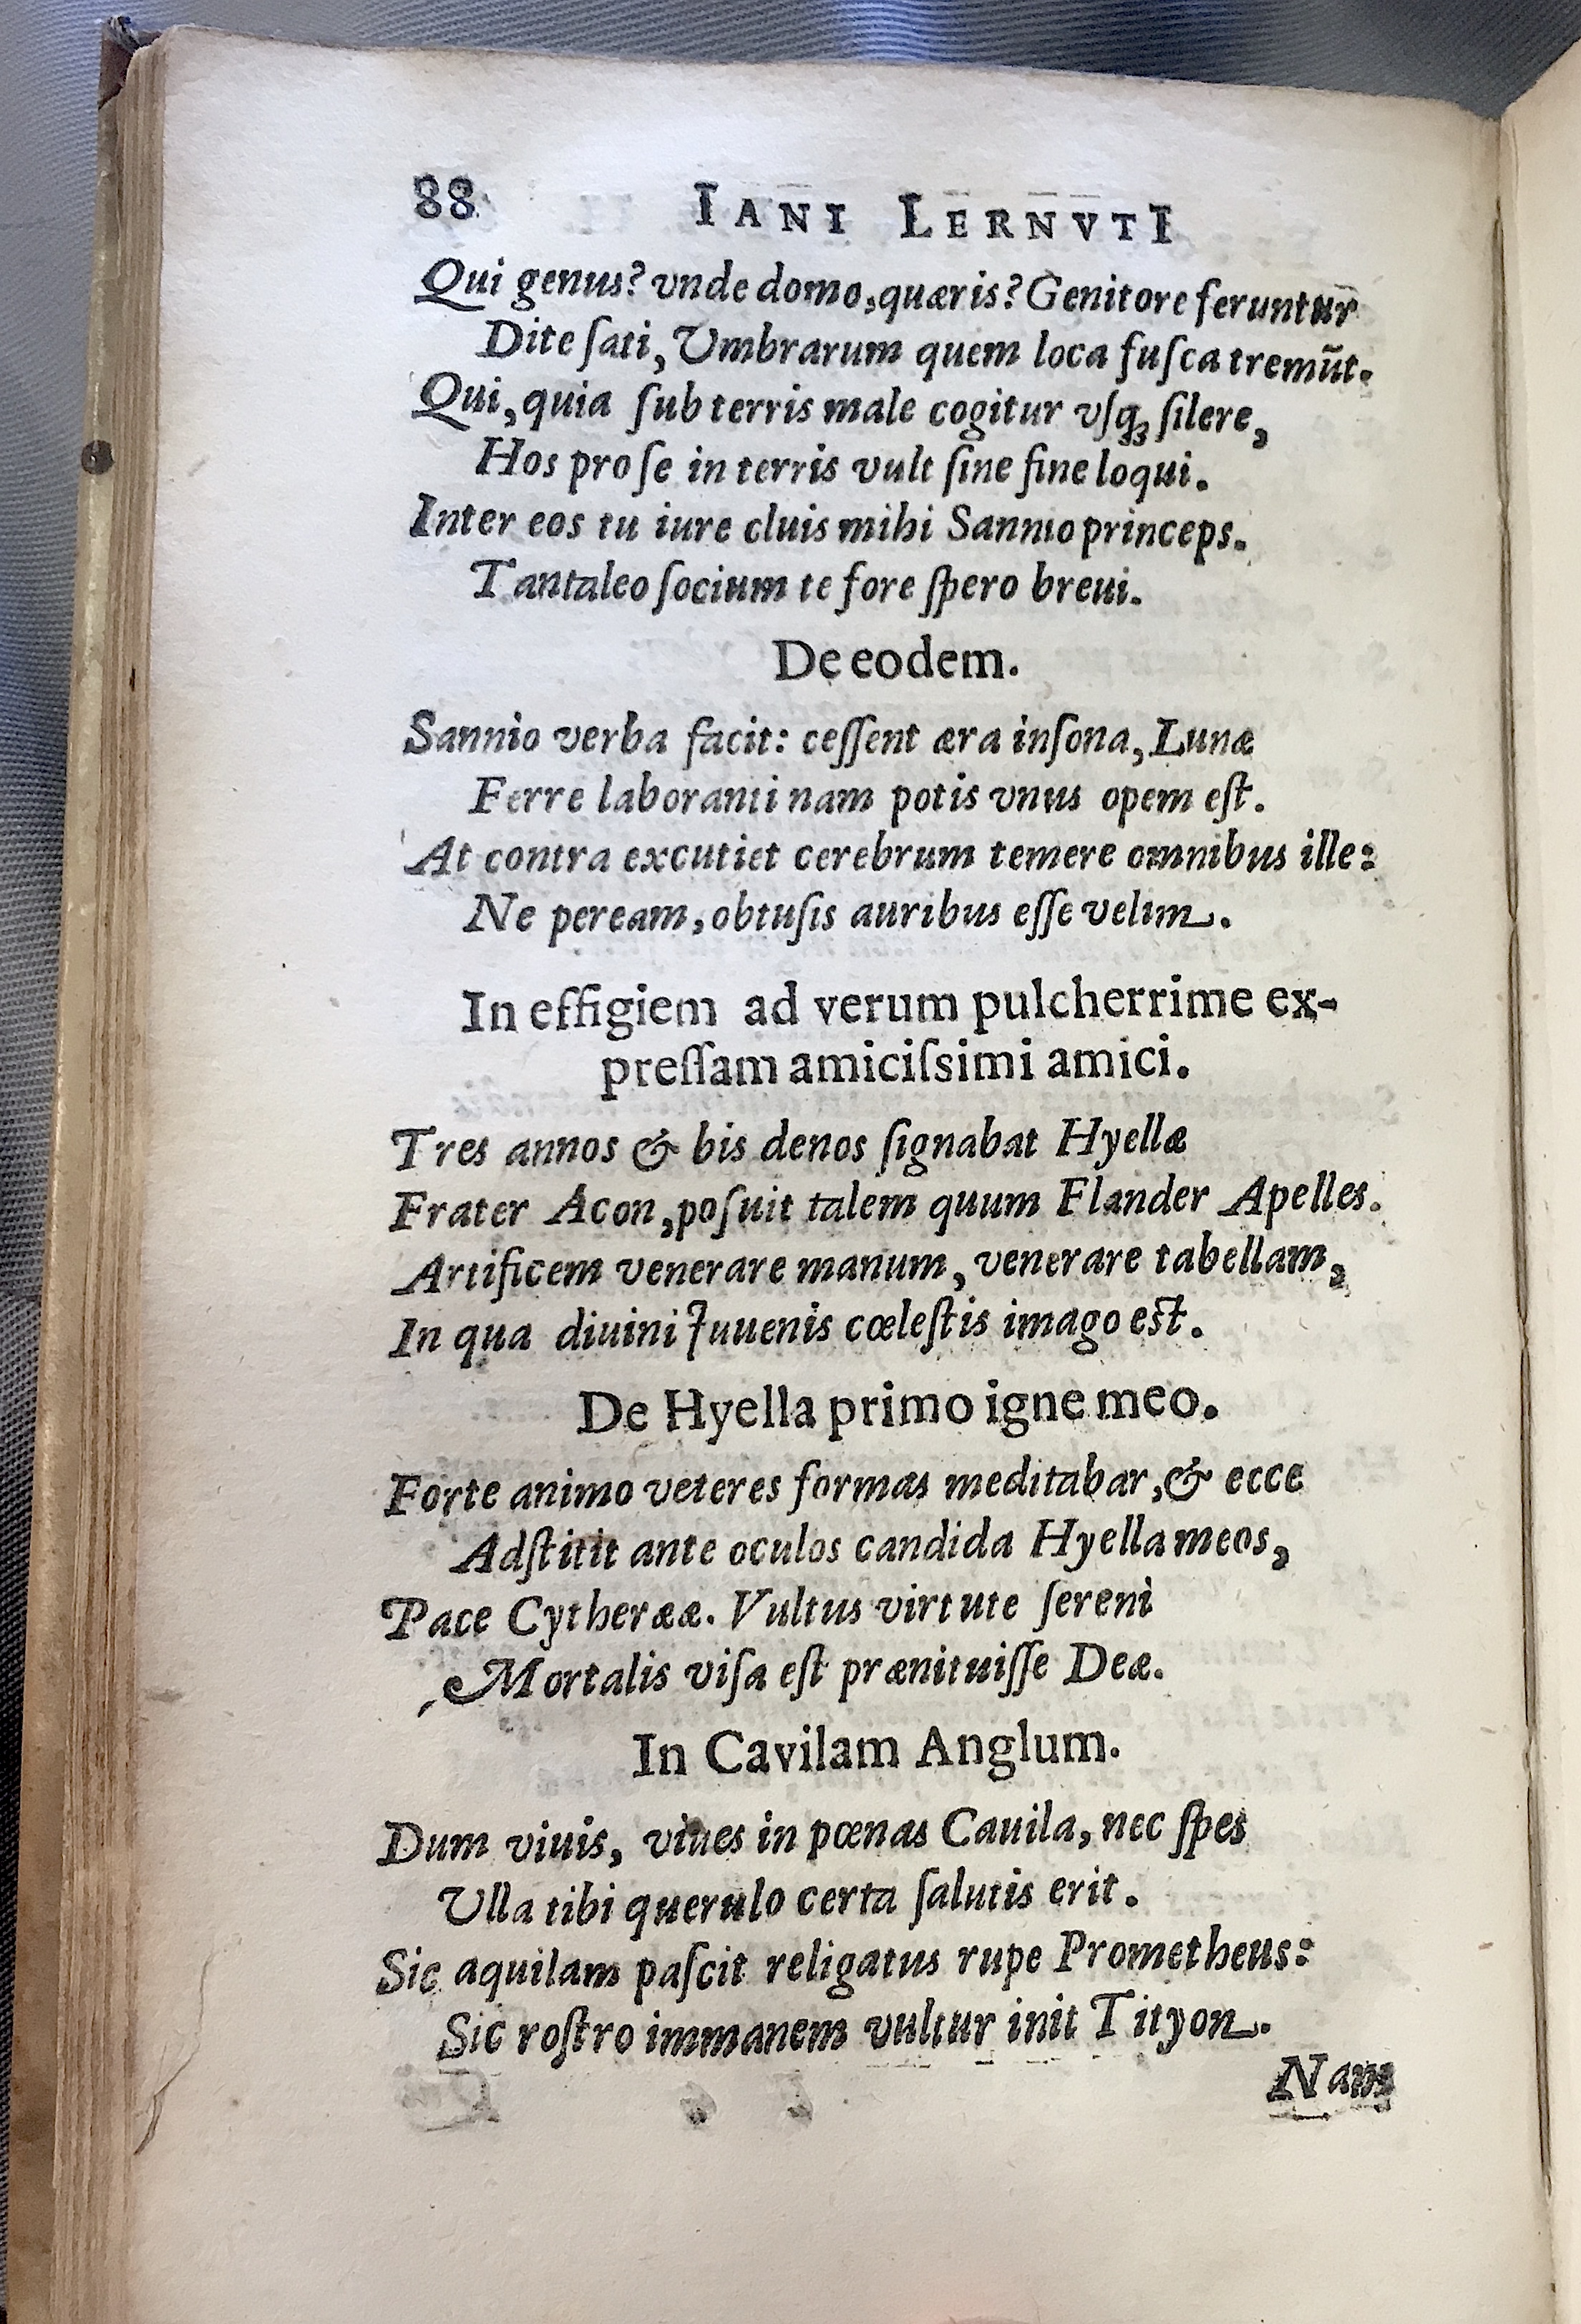 88 IANI LERNVTI
Qui genus? vnde domo, quæris? Genitore feruntur
Dite ſati, Umbrarum quem loca fuſca tremũt.
Qui, quia ſub terris male cogitur vſq; ſilere,
Hos pro ſe in terris vult ſine fine loqui.
Inter eos tu iure cluis mihi Sannio princeps.
Tantaleo ſocium te fore ſpero breui.
De eodem.
Sannio verba facit: ceſſent æra inſona, Lunæ
Ferre laboranti nam potis vnus opem eſt.
At contra excutiet cerebrum temere omnibus ille:
Ne peream, obtuſis auribus eſſe velim.
In effigiem ad verum pulcherrime ex-
preſſam amiciſsimi amici.
Tres annos & bis denos ſignabat Hyellæ
Frater Acon, poſuit talem quum Flander Apelles.
Artificem venerare manum, venerare tabellam,
In qua diuini Juuenis cœleſtis imago eſt.
De Hyella primo igne meo.
Forte animo veteres formas meditabar, & ecce
Adſtitit ante oculos candida Hyella meos,
Pace Cytherææ. Vultus virtute ſereni
Mortalis viſa eſt prænituiſſe Deæ.
In Cavilam Anglum.
Dum viuis, viues in pœnas Cauila, nec ſpes
Ulla tibi querulo certa ſalutis erit.
Sic aquilam paſcit religatus rupe Prometheus:
Sic roſtro immanem vultur init Tityon.
Nam